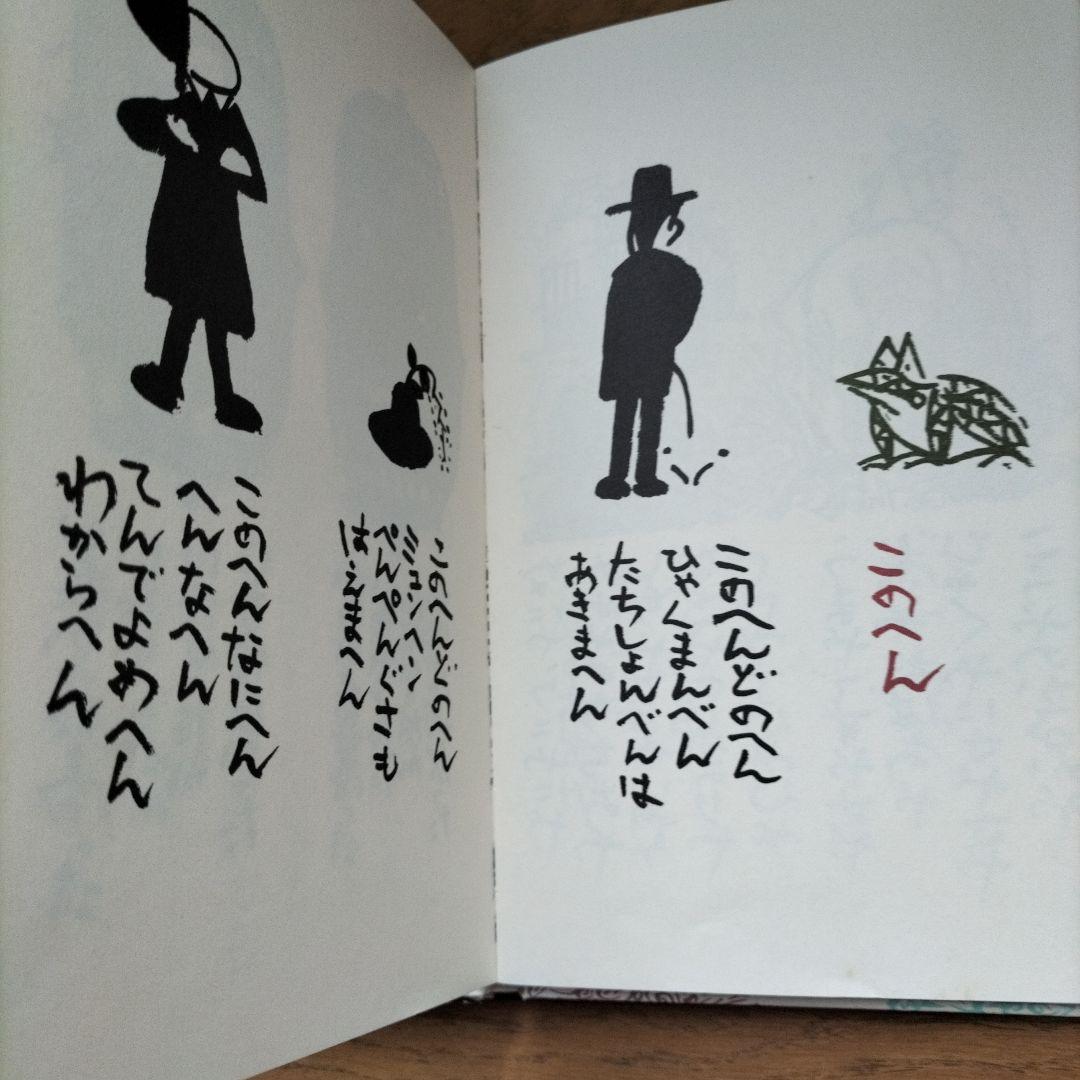 このへん
このへんどのへん
ひゃくまんべん
たちしょんべんは
あきまへん
このへんどのへん
ミュンヘン
ぺんぺんぐさも
はえまへん
このへんなにへん
へんなへん
てんでよめへん
わからへん